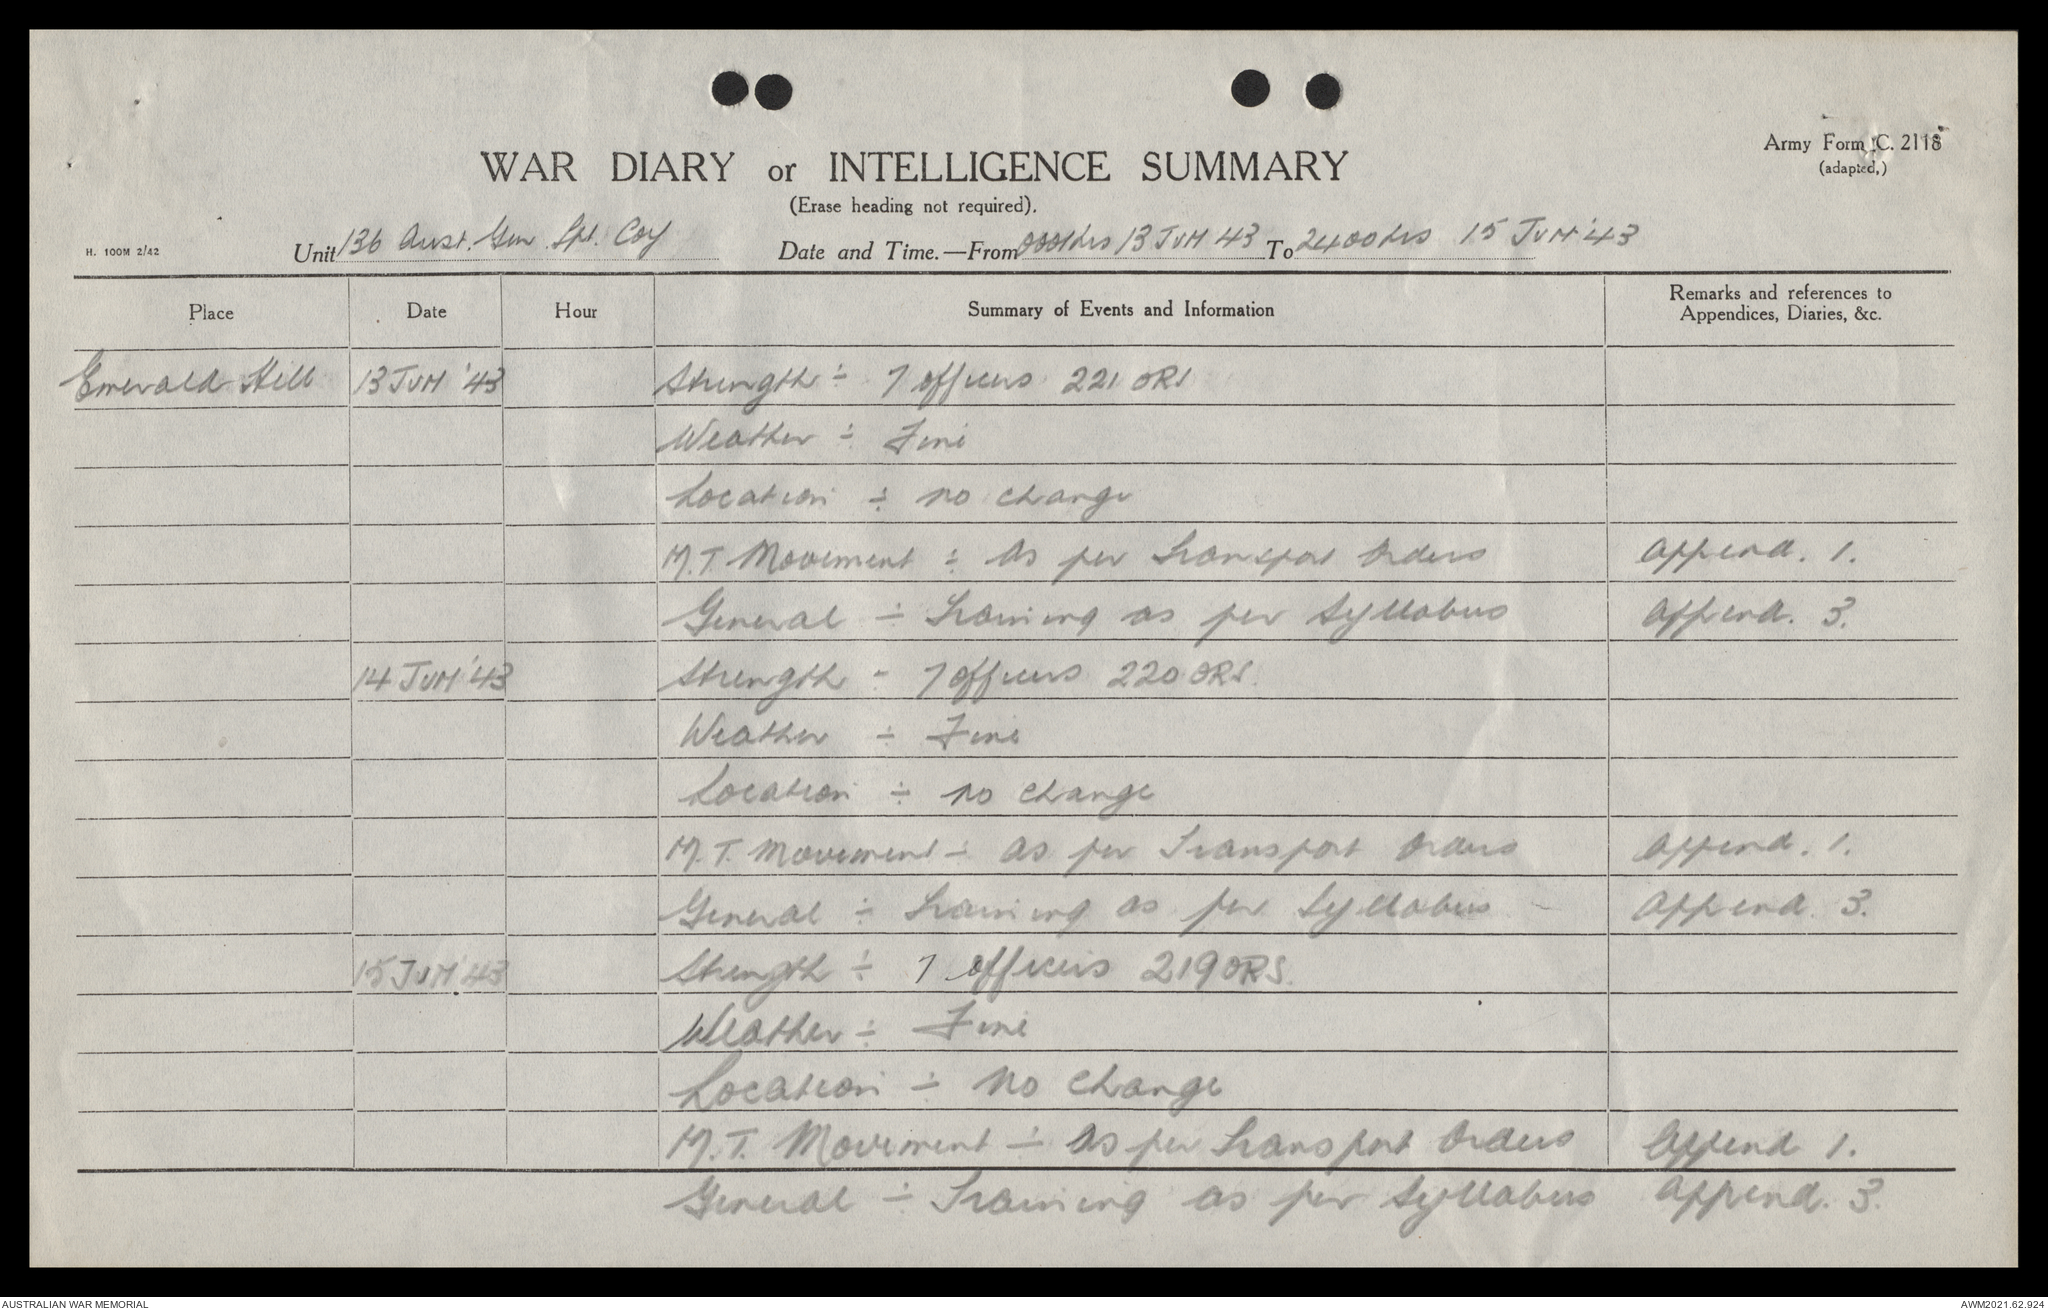 WAR DIARY or INTELLIGENCE SUMMARY
(Erase heading not required).
Army Form C. 2118
(adapted,)
H. 100M 2/42
Unit 136 Aust. Gen Spt. Coy Date and Time.—From 0001hrs 13 JUN 43 To 2400hrs 15 JUN '43
Place Date Hour Summary of Events and Information Remarks and references to
Appendices, Diaries, &c.
Emerald Hill 13 JUN '43 Strength ÷ 7 officers 221 ORS
Weather ÷ Fine
Location ÷ no change
M.T. Movement ÷ As per Transport Orders Append. 1.
General ÷ Training as per Syllabus Append. 3.
14 JUN '43 Strength - 7 officers 220 ORS.
Weather ÷ Fine
Location ÷ no change
M.T. Movement ÷ As per Transport Orders Append. 1.
General ÷ Training as per Syllabus Append. 3.
15 JUN '43 Strength ÷ 7 officers 219 ORS.
Weather ÷ Fine
Location ÷ no change
M.T. Movement ÷ As per Transport Orders Append 1.
General ÷ Training as per Syllabus Append. 3.
AUSTRALIAN WAR MEMORIAL
AWM2021.62.924